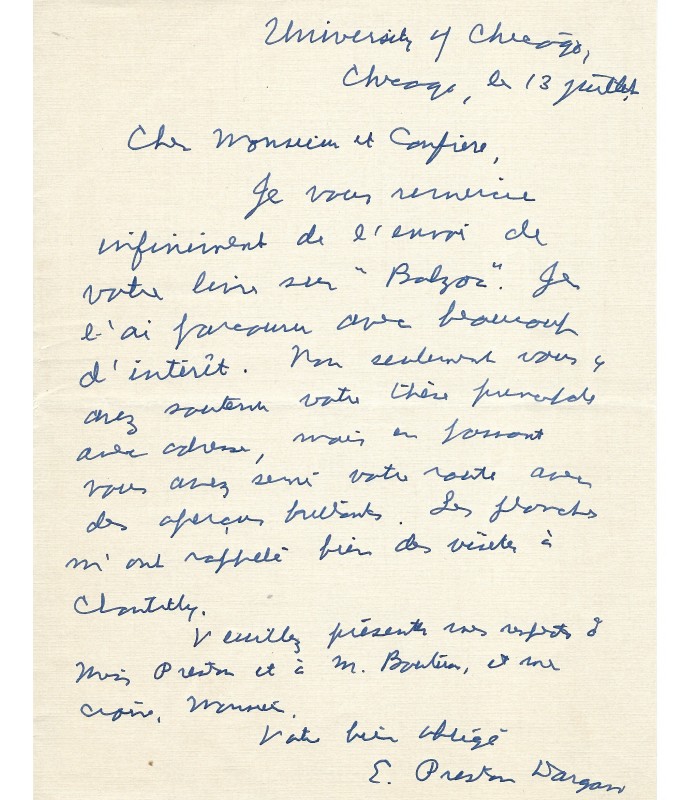 University of Chicago,
Chicago, le 13 juillet
Cher Monsieur et Confrère,
Je vous remercie
infiniment de l'envoi de
votre livre sur "Balzac". Je
l'ai parcouru avec beaucoup
d'intérêt. Non seulement vous y
avez soutenu votre thèse
avec adresse, mais en passant
vous avez semé votre route avec
des aperçus brillants. Les planches
m'ont rappelé bien des visites à
Chantilly.
Veuillez présenter mes respects à
Miss Preston et à M. Bouteron, et me
croire, Monsieur,
Votre bien obligé
E. Preston Dargan